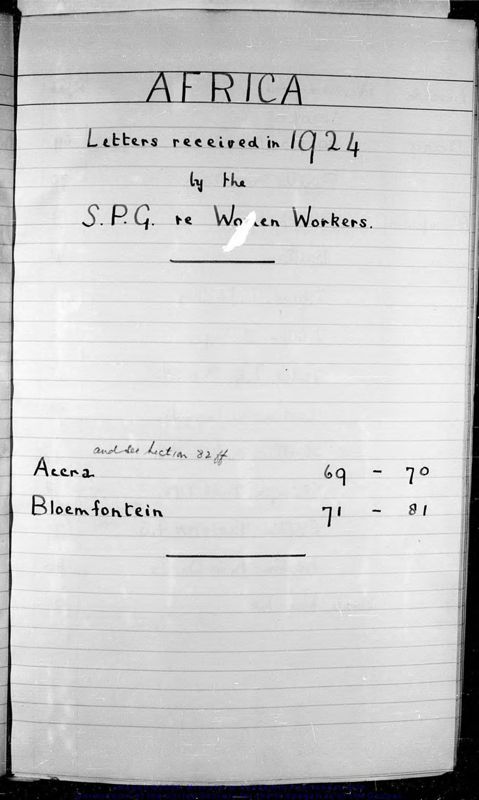 AFRICA
Letters received in 1924
by the
S.P.G. re Women Workers.
and see Section 82 ff
Accra 69 - 70
Bloemfontein 71 - 81